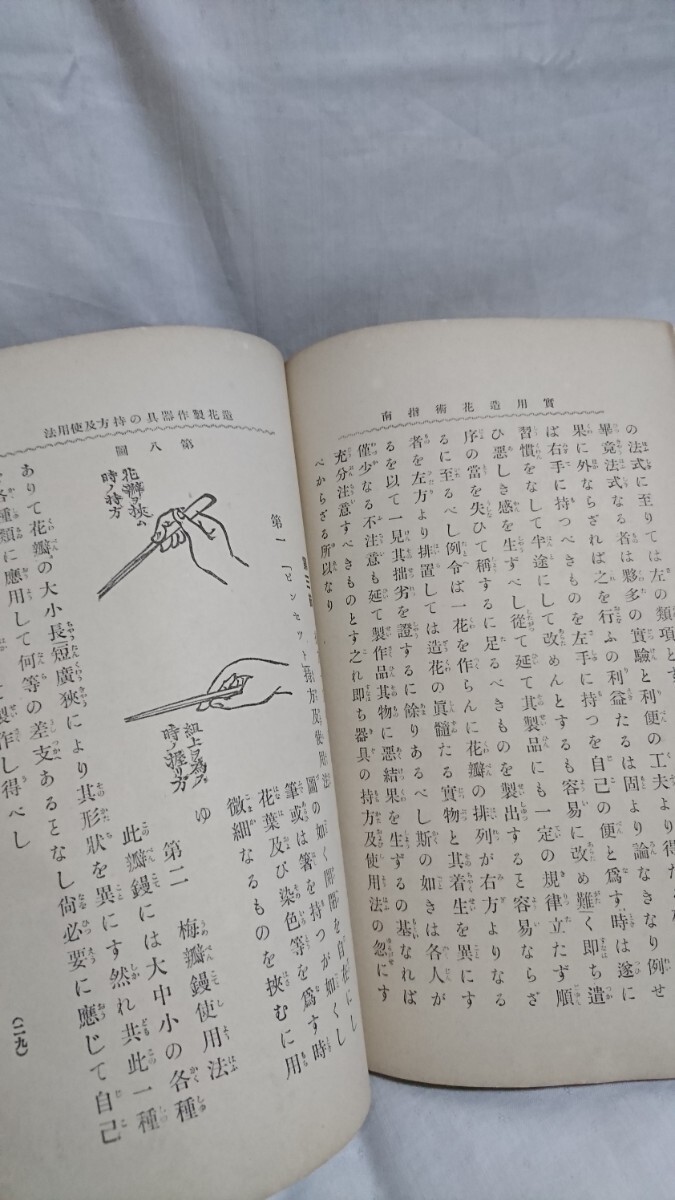 實用造花術指南
の法式に至りては左の類項とす
畢竟法式なる者は夥多の實驗と利便の工夫より得たる
果に外ならざれば之を行ふの利益たるは固より論なきなり例せ
ば右手に持つべきものを左手に持つを自己の便と爲す時は遂に
習慣をなして半途にして改めんとするも容易に改め難く即ち遺
ひ悪しき感を生ずべし從て延て其製品にも一定の規律立たず順
序の當を失ひて稱するに足るべきものを製出すると容易ならざ
るに至るべし例令ば一花を作らんに花瓣の排列が右方よりなる
者を左方より排置しては造花の眞髓たる實物と其着生を異にす
るを以て一見其拙劣を證するに餘りあるべし斯の如きは各人が
僅少なる不注意も延て製作品其物に惡結果を生ずるの基なれば
充分注意すべきものとす之れ即ち器具の持方及使用法の忽にす
べからざる所以なり
造花製作器具の持方及使用法
第八圖
花瓣ヲ狹ム
時ノ持方
組上ヲ爲ス
時ノ握リ方
第一 「ピンセット」持方及使用法
圖の如く開閉を自在にし
筆或は箸を持つが如くし
花葉及び染色等を爲す時
微細なるものを挾むに用
ゆ
第二 梅瓣鏝使用法
此瓣鏝には大中小の各種
ありて花瓣の大小長短廣狹により其形狀を異にす然れ共此一種
各種類に應用して何等の差支あるとなし尙必要に應じて自己
製作し得べし
(二九)